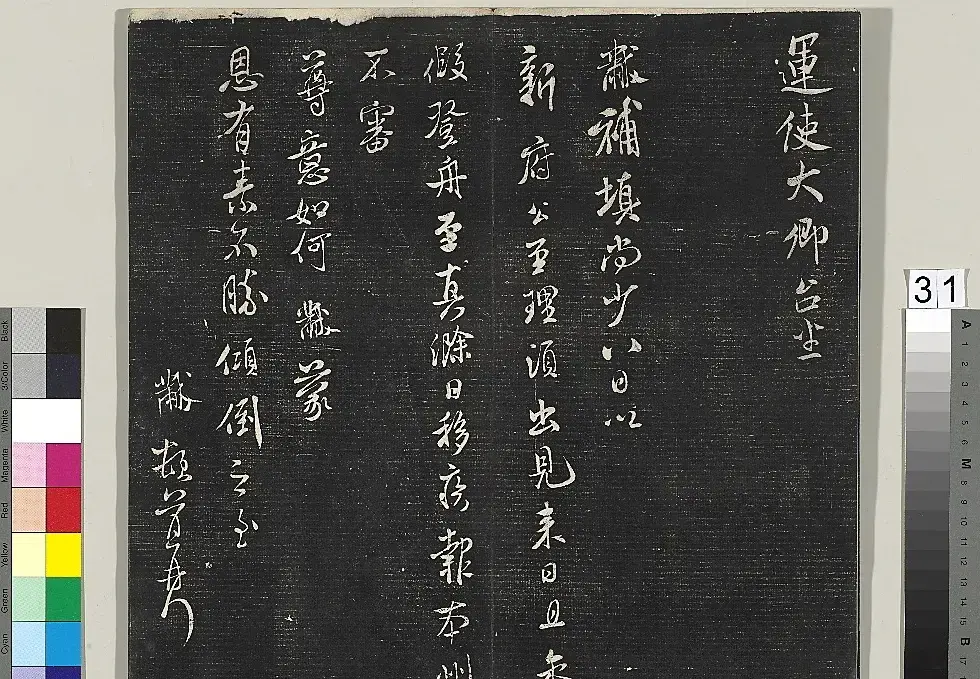 運使大卿台坐
黻補填尚少八日以
新府公至理須出見来日且
假登舟至真滁日移疾報本州
不審
尊意如何 黻蒙
恩有素不勝傾倒之至
黻 頓首再
31
Black
3/Color
White
Magenta
Red
Yellow
Green
Cyan
A 1 2 3 4 5 6 M 8 9 10 11 12 13 14 15 B 17